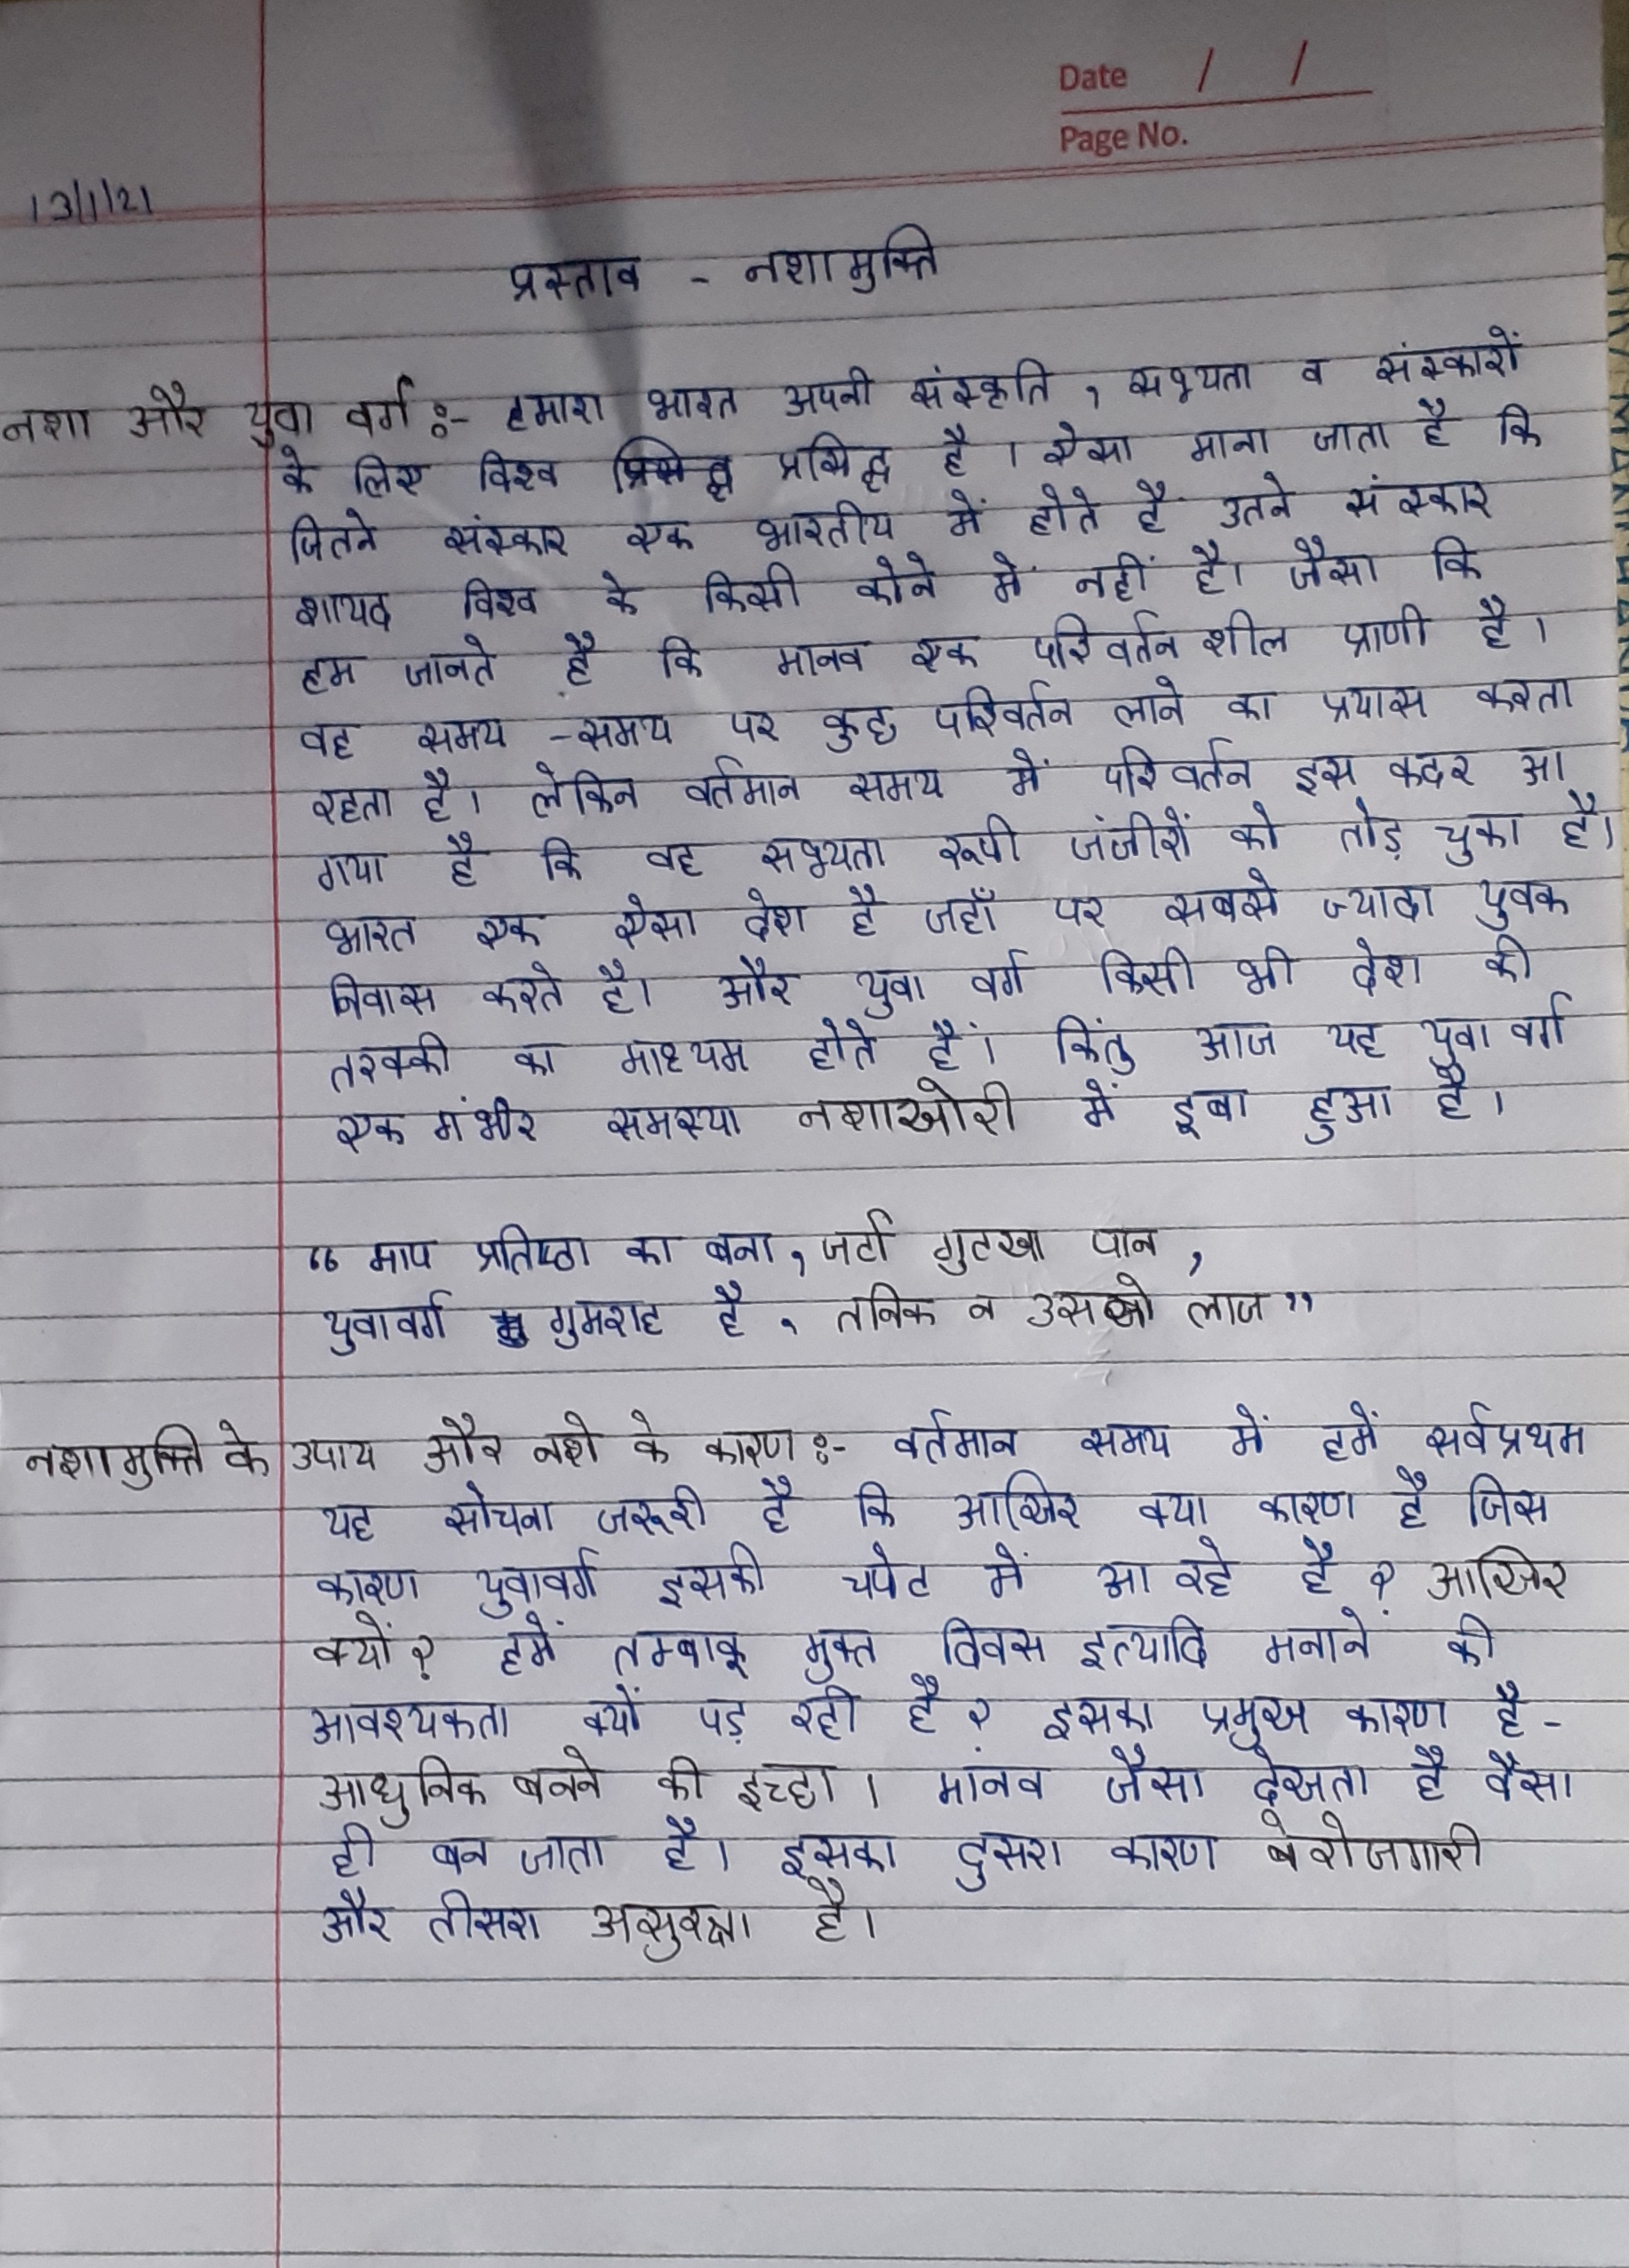 Date / /
Page No.
13/1/21
प्रस्ताव - नशामुक्ति
नशा और युवा वर्ग :- हमारा भारत अपनी संस्कृति , सभ्यता व संस्कारों
के लिए विश्व प्रसिद्ध है । ऐसा माना जाता है कि
जितने संस्कार एक भारतीय में होते है उतने संस्कार
शायद विश्व के किसी कोने में नहीं है। जैसा कि
हम जानते है कि मानव एक परिवर्तन शील प्राणी है ।
वह समय - समय पर कुछ परिवर्तन लाने का प्रयास करता
रहता है । लेकिन वर्तमान समय में परिवर्तन इस कदर आ
गया है कि वह सभ्यता रूपी जंजीरों को तोड़ चुका है।
भारत एक ऐसा देश है जहाँ पर सबसे ज्यादा युवक
निवास करते है। और युवा वर्ग किसी भी देश की
तरक्की का माध्यम होते हैं । किंतु आज यह युवा वर्ग
एक गंभीर समस्या नशाखोरी में डूबा हुआ है ।
“ माप प्रतिष्ठा का बना , जर्दा गुटखा पान ,
युवावर्ग गुमराह है , तनिक न उसको लाज ”
नशामुक्ति के उपाय और नशे के कारण :- वर्तमान समय में हमें सर्वप्रथम
यह सोचना जरूरी है कि आखिर क्या कारण है जिस
कारण युवावर्ग इसकी चपेट में आ रहे है ? आखिर
क्यों ? हमें तम्बाकू मुक्त दिवस इत्यादि मनाने की
आवश्यकता क्यों पड़ रही है ? इसका प्रमुख कारण है -
आधुनिक बनने की इच्छा । मानव जैसा देखता है वैसा
ही बन जाता है । इसका दुसरा कारण बेरोजगारी
और तीसरा असुरक्षा है ।